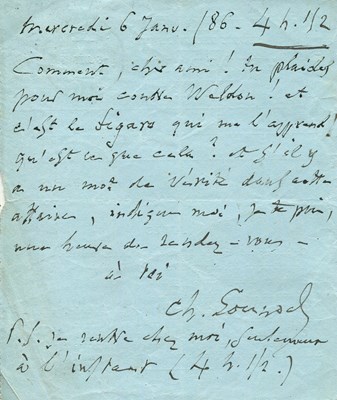 Mercredi 6 Janv. /86 - 4 h. 1/2
Comment, cher ami! Tu plaides
pour moi contre Weldon! et
c'est le Figaro qui me l'apprend!
qu'est ce que cela? et s'il y
a un mot de vérité dans cette
affaire, indique moi, je te prie,
une heure de rendez-vous -
à toi
Ch. Gounod
P.S. je rentre chez moi seulement
à l'instant (4 h. 1/2.)